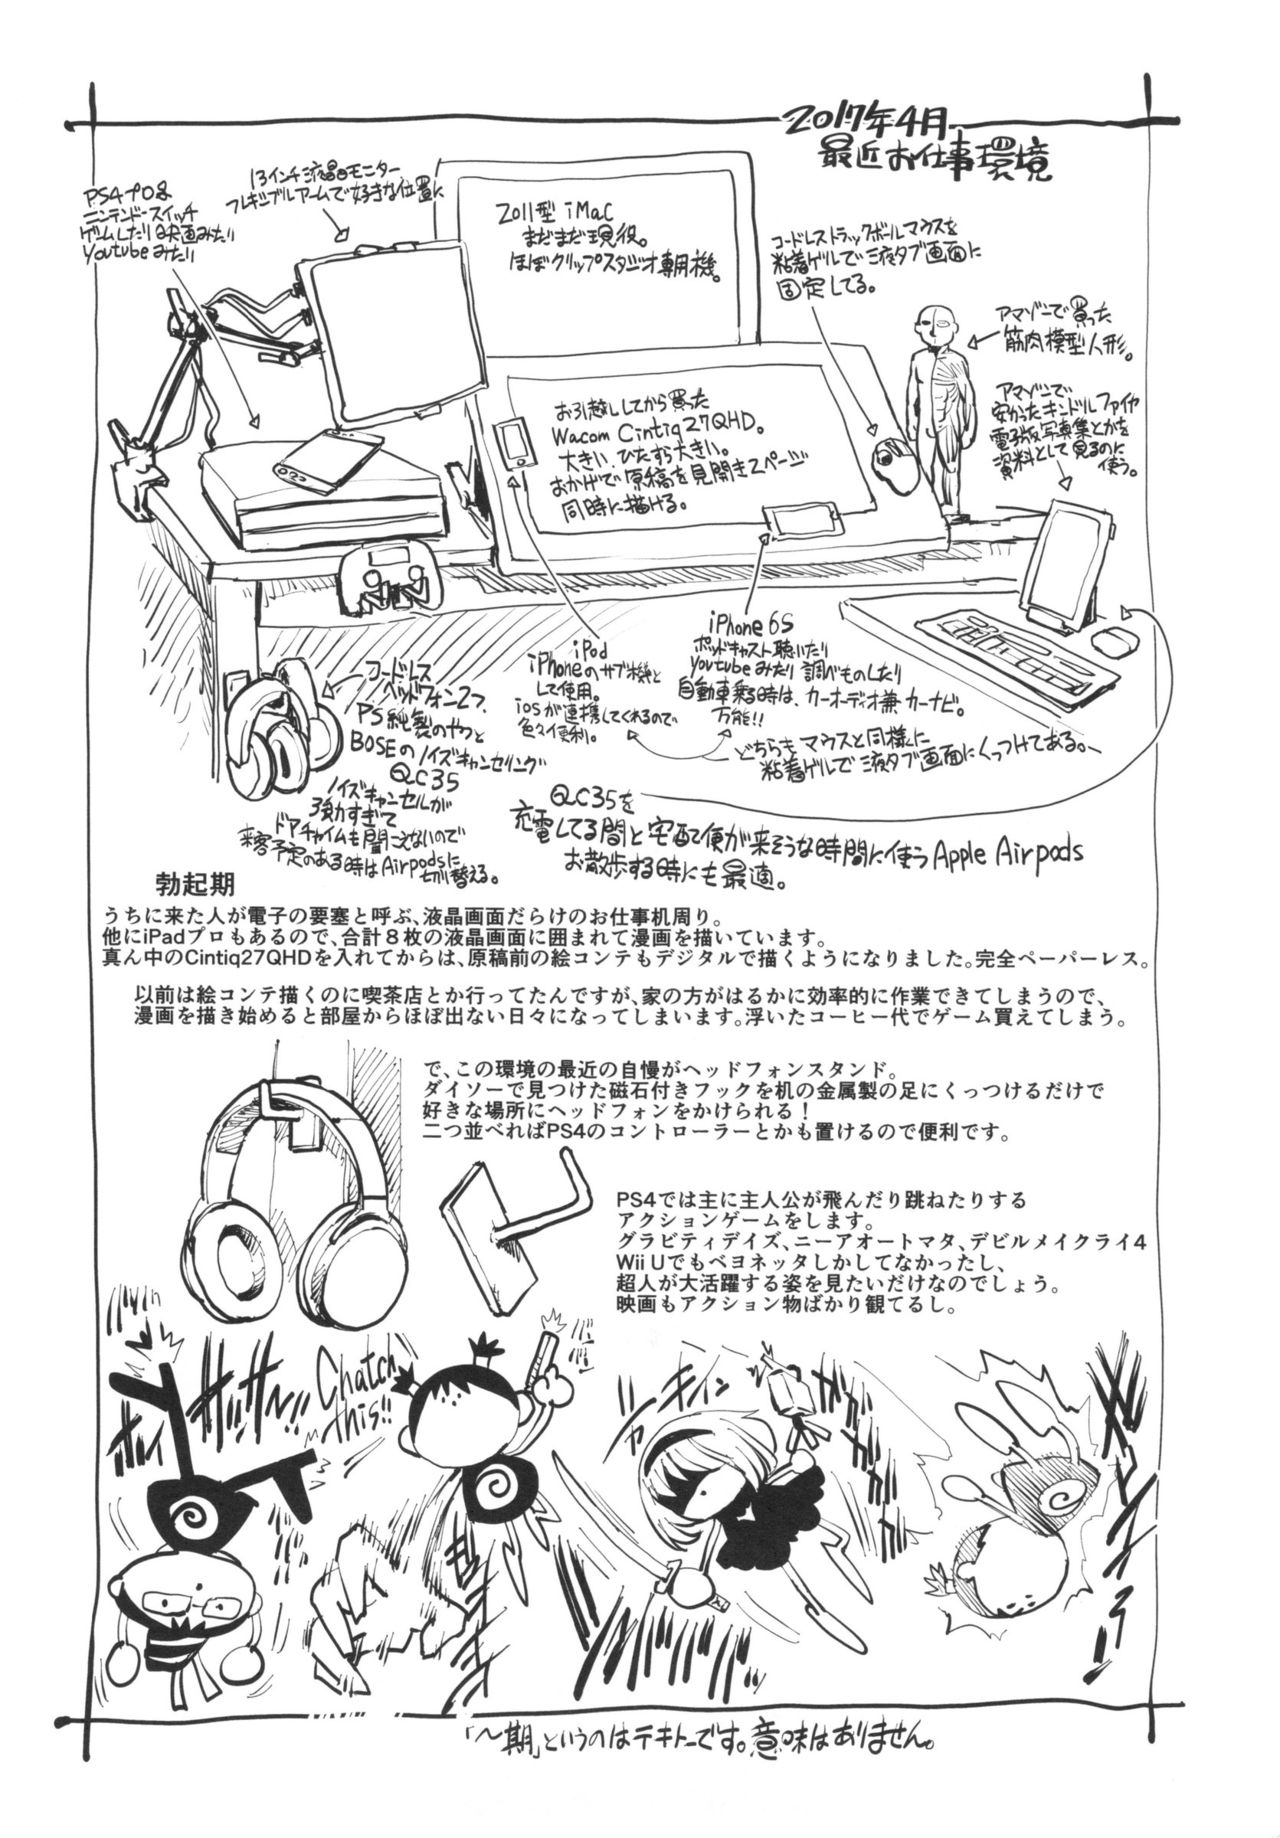 2017年4月
最近お仕事環境
13インチ液晶モニター
フレキシブルアームで好きな位置に
PS4プロ&
ニンテンドースイッチ
ゲームしたり映画みたり
Youtubeみたり
2011型 iMac
まだまだ現役。
ほぼクリップスタジオ専用機。
コードレストラックボールマウスを
粘着ゲルで液タブ画面に
固定してる。
アマゾンで買った
筋肉模型人形。
アマゾンで
安かったキンドルファイヤ
電子版写真集とかを
資料として見るのに
使う。
お引越ししてから買った
Wacom Cintiq27QHD。
大きい、ひたすら大きい。
おかげで原稿を見開き2ページ
同時に描ける。
iPod
iPhoneのサブ機と
して使用。
iosが連携してくれるので
色々便利。
iPhone6S
ポッドキャスト聴いたり
Youtubeみたり調べものしたり
自動車乗る時は、カーオーディオ兼カーナビ。
万能!!
どちらもマウスと同様に
粘着ゲルで液タブ画面にくっつけてある。
コードレス
ヘッドフォン2つ、
PS純製のやつと
BOSEのノイズキャンセリング
QC35
ノイズキャンセルが
強力すぎて
ドアチャイムも聞こえないので
来客予定のある時はAirpodsに
切り替える。
QC35を
充電してる間と宅配便が来そうな時間に使うApple Airpods
お散歩する時にも最適。
勃起期
うちに来た人が電子の要塞と呼ぶ、液晶画面だらけのお仕事机周り。
他にiPadプロもあるので、合計8枚の液晶画面に囲まれて漫画を描いています。
真ん中のCintiq27QHDを入れてからは、原稿前の絵コンテもデジタルで描くようになりました。完全ペーパーレス。
以前は絵コンテ描くのに喫茶店とか行ってたんですが、家の方がはるかに効率的に作業できてしまうので、
漫画を描き始めると部屋からほぼ出ない日々になってしまいます。浮いたコーヒー代でゲーム買えてしまう。
で、この環境の最近の自慢がヘッドフォンスタンド。
ダイソーで見つけた磁石付きフックを机の金属製の足にくっつけるだけで
好きな場所にヘッドフォンをかけられる!
二つ並べればPS4のコントローラーとかも置けるので便利です。
PS4では主に主人公が飛んだり跳ねたりする
アクションゲームをします。
グラビティデイズ、ニーアオートマタ、デビルメイクライ4
Wii Uでもベヨネッタしかしてなかったし、
超人が大活躍する姿を見たいだけなのでしょう。
映画もアクション物ばかり観てるし。
Chatch
this!!
ガキィン
「〜期」というのはテキトーです。意味はありません。